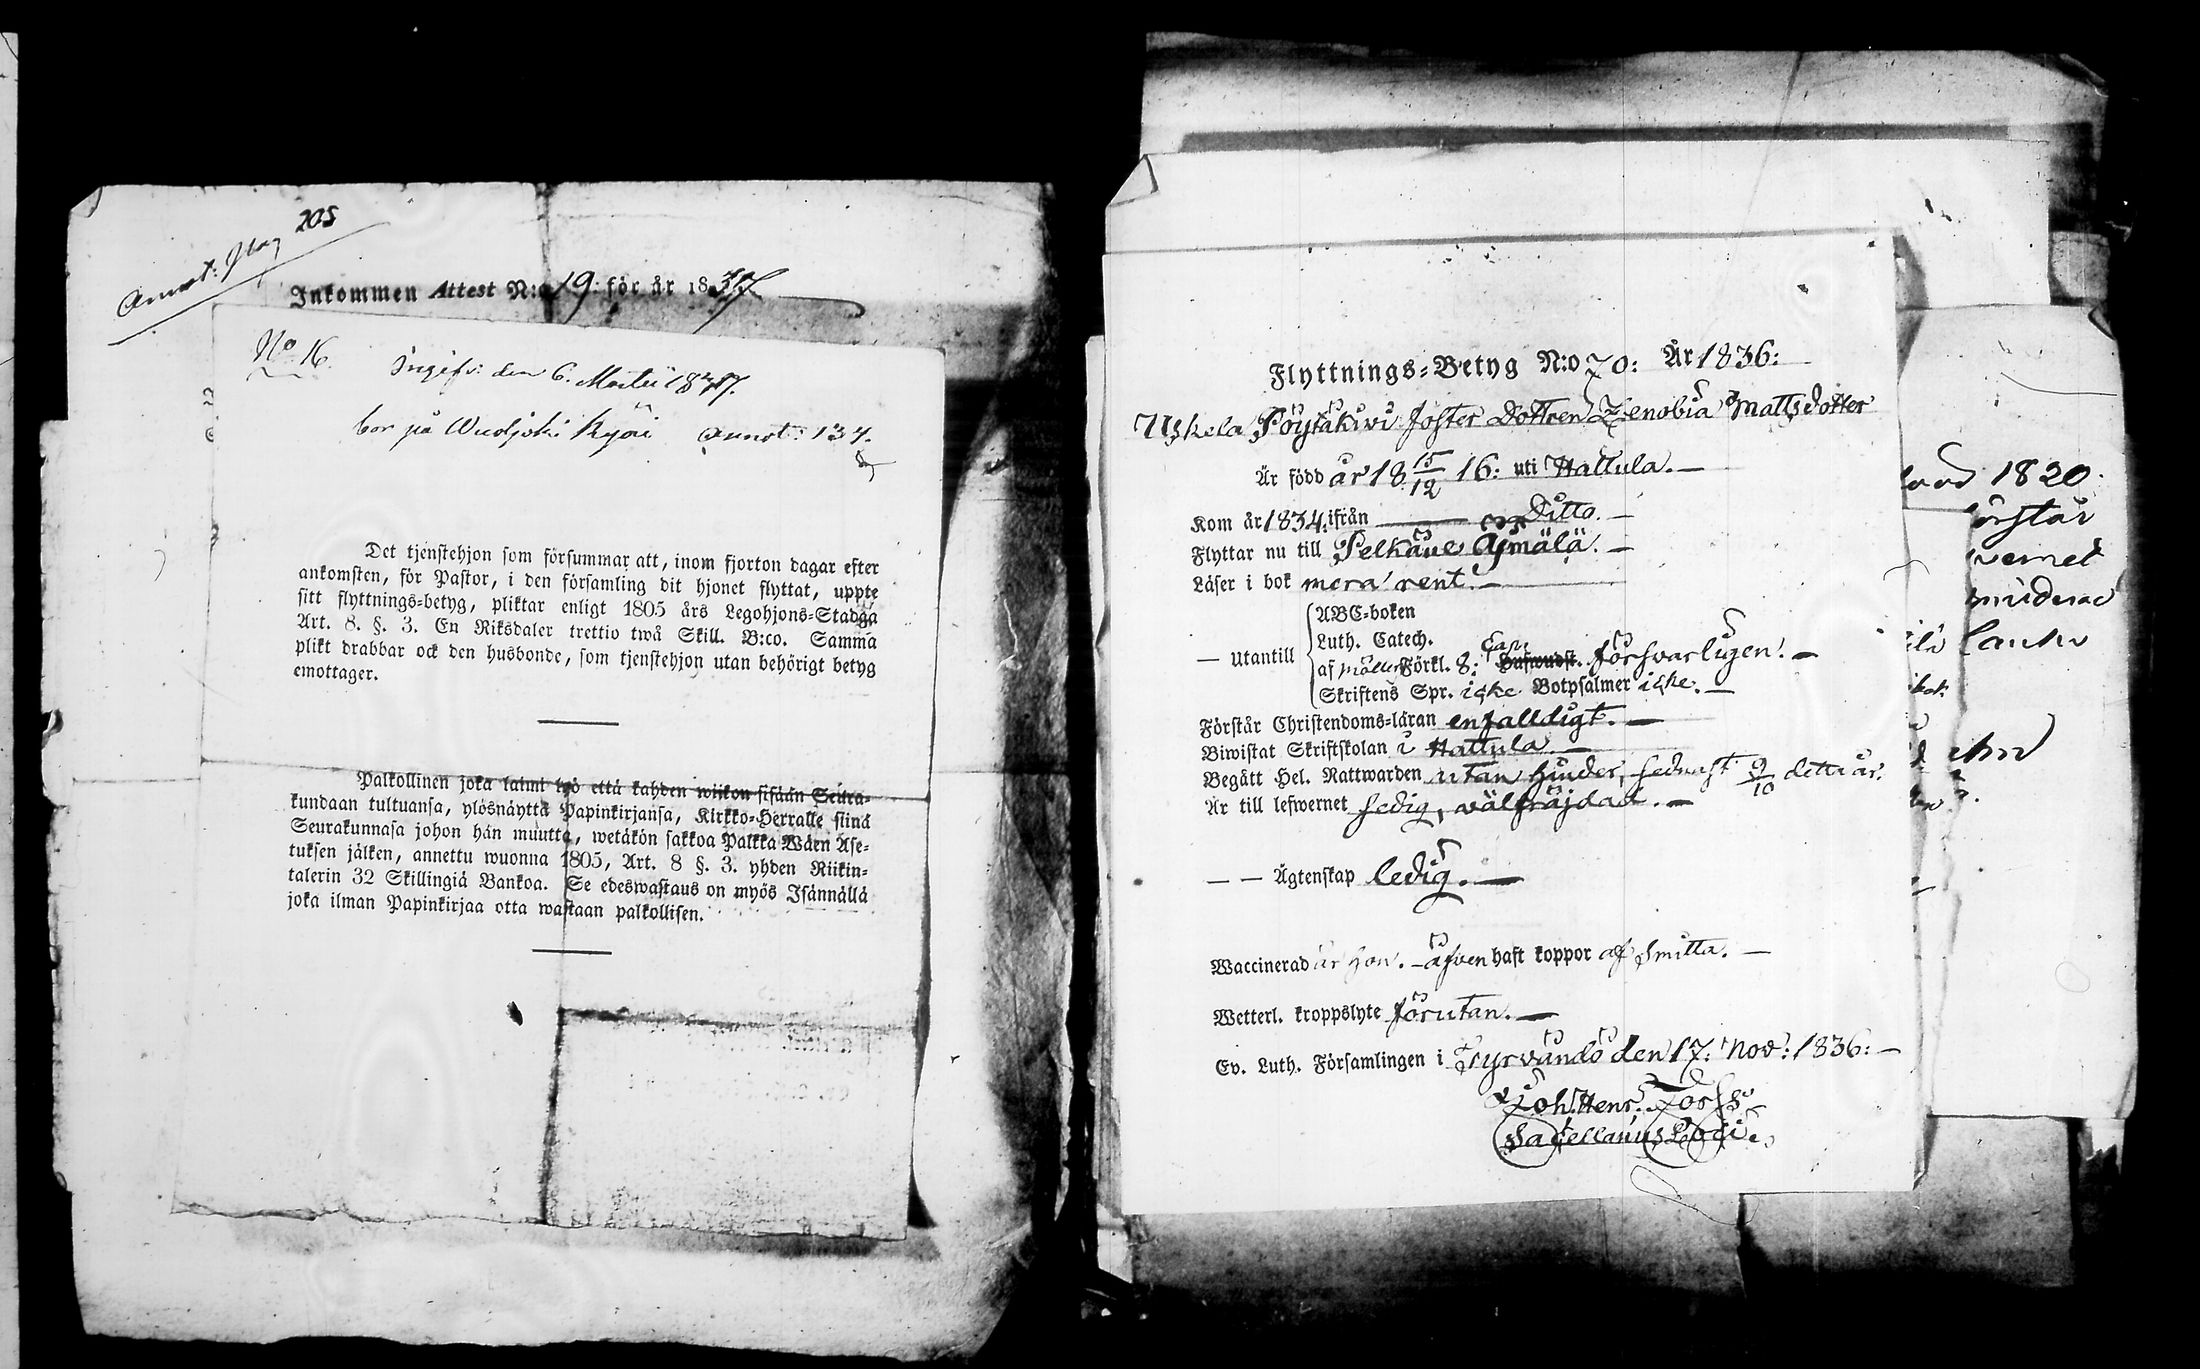 205
Annot: pag
Inkommen Attest N:o 19: för år 1837
No 16.
Ingifv: den 6. Martii 1837.
bor på Wudjoki Kyöri Annot: 134.
Det tjenstehjon som försummar att, inom fjorton dagar efter
ankomsten, för Pastor, i den församling dit hjonet flyttat, uppte
sitt flyttnings-betyg, pliktar enligt 1805 års Legohjons-Stadga
Art. 8. §. 3. En Riksdaler trettio twå Skill. B:co. Samma
plikt drabbar ock den husbonde, som tjenstehjon utan behörigt betyg
emottager.
Palkollinen joka laimi lyö että kahden wiikon sisään Seura-
kundaan tultuansa, ylösnäyttä Papinkirjansa, Kirkko-Herralle siinä
Seurakunnasa johon hän muutta, wetäkön sakkoa Palkka Wäen Ase-
tuksen jälken, annettu wuonna 1805, Art. 8 §. 3. yhden Riikin-
talerin 32 Skillingiä Bankoa. Se edeswastaus on myös Isännällä
joka ilman Papinkirjaa otta wastaan palkollisen.
Flyttnings-Betyg N:o 70: År 1836:
Uskela Pöytäkiwi foster Dottren Zenobia Mattsdotter
Är född år 18 15/12 16: uti Hattula.
Kom år 1834. ifrån Ditto.
Flyttar nu till Pelkäne Äjmälä.
Läser i bok mera rent.
— Utantill
ABC-boken
Luth. Catech.
af Möllers Förkl. 8: Cap. Hufwudst. försvarligen.
Skriftens Spr. icke Botpsalmer icke.
Förstår Christendoms-läran enfalldigt.
Biwistat Skriftskolan i Hattula.
Begått Hel. Nattwarden utan hinder, sednast 9/10 detta år.
Är till lefwernet sedig, wälfräjdad.
— — Ägtenskap ledig.
Waccinerad är hon. äfven haft koppor af smitta.
Wetterl. kroppslyte förutan.
Ev. Luth. Församlingen i Tyrvändö den 17: Nov: 1836:
Joh. Henr. Forss.
Sacellanus Loci.
1820.
förstår